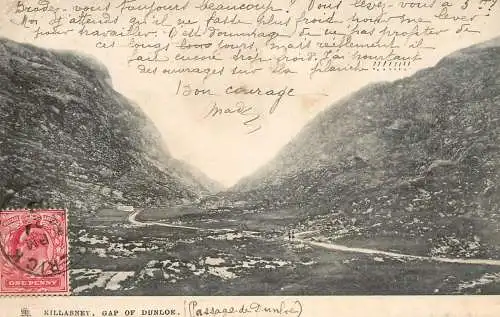 Brodez-vous toujours beaucoup? Vous levez-vous à 5 h?
Moi j'attends qu'il ne fasse plus froid pour me lever
pour travailler. C'est dommage de ne pas profiter de
ces longs jours, mais réellement il
fait encore trop froid. J'ai pourtant
des ouvrages sur la planche!!!!!!!
Bon courage
Mad
KILLARNEY, GAP OF DUNLOE. (Passage de Dunloe)
ONE PENNY